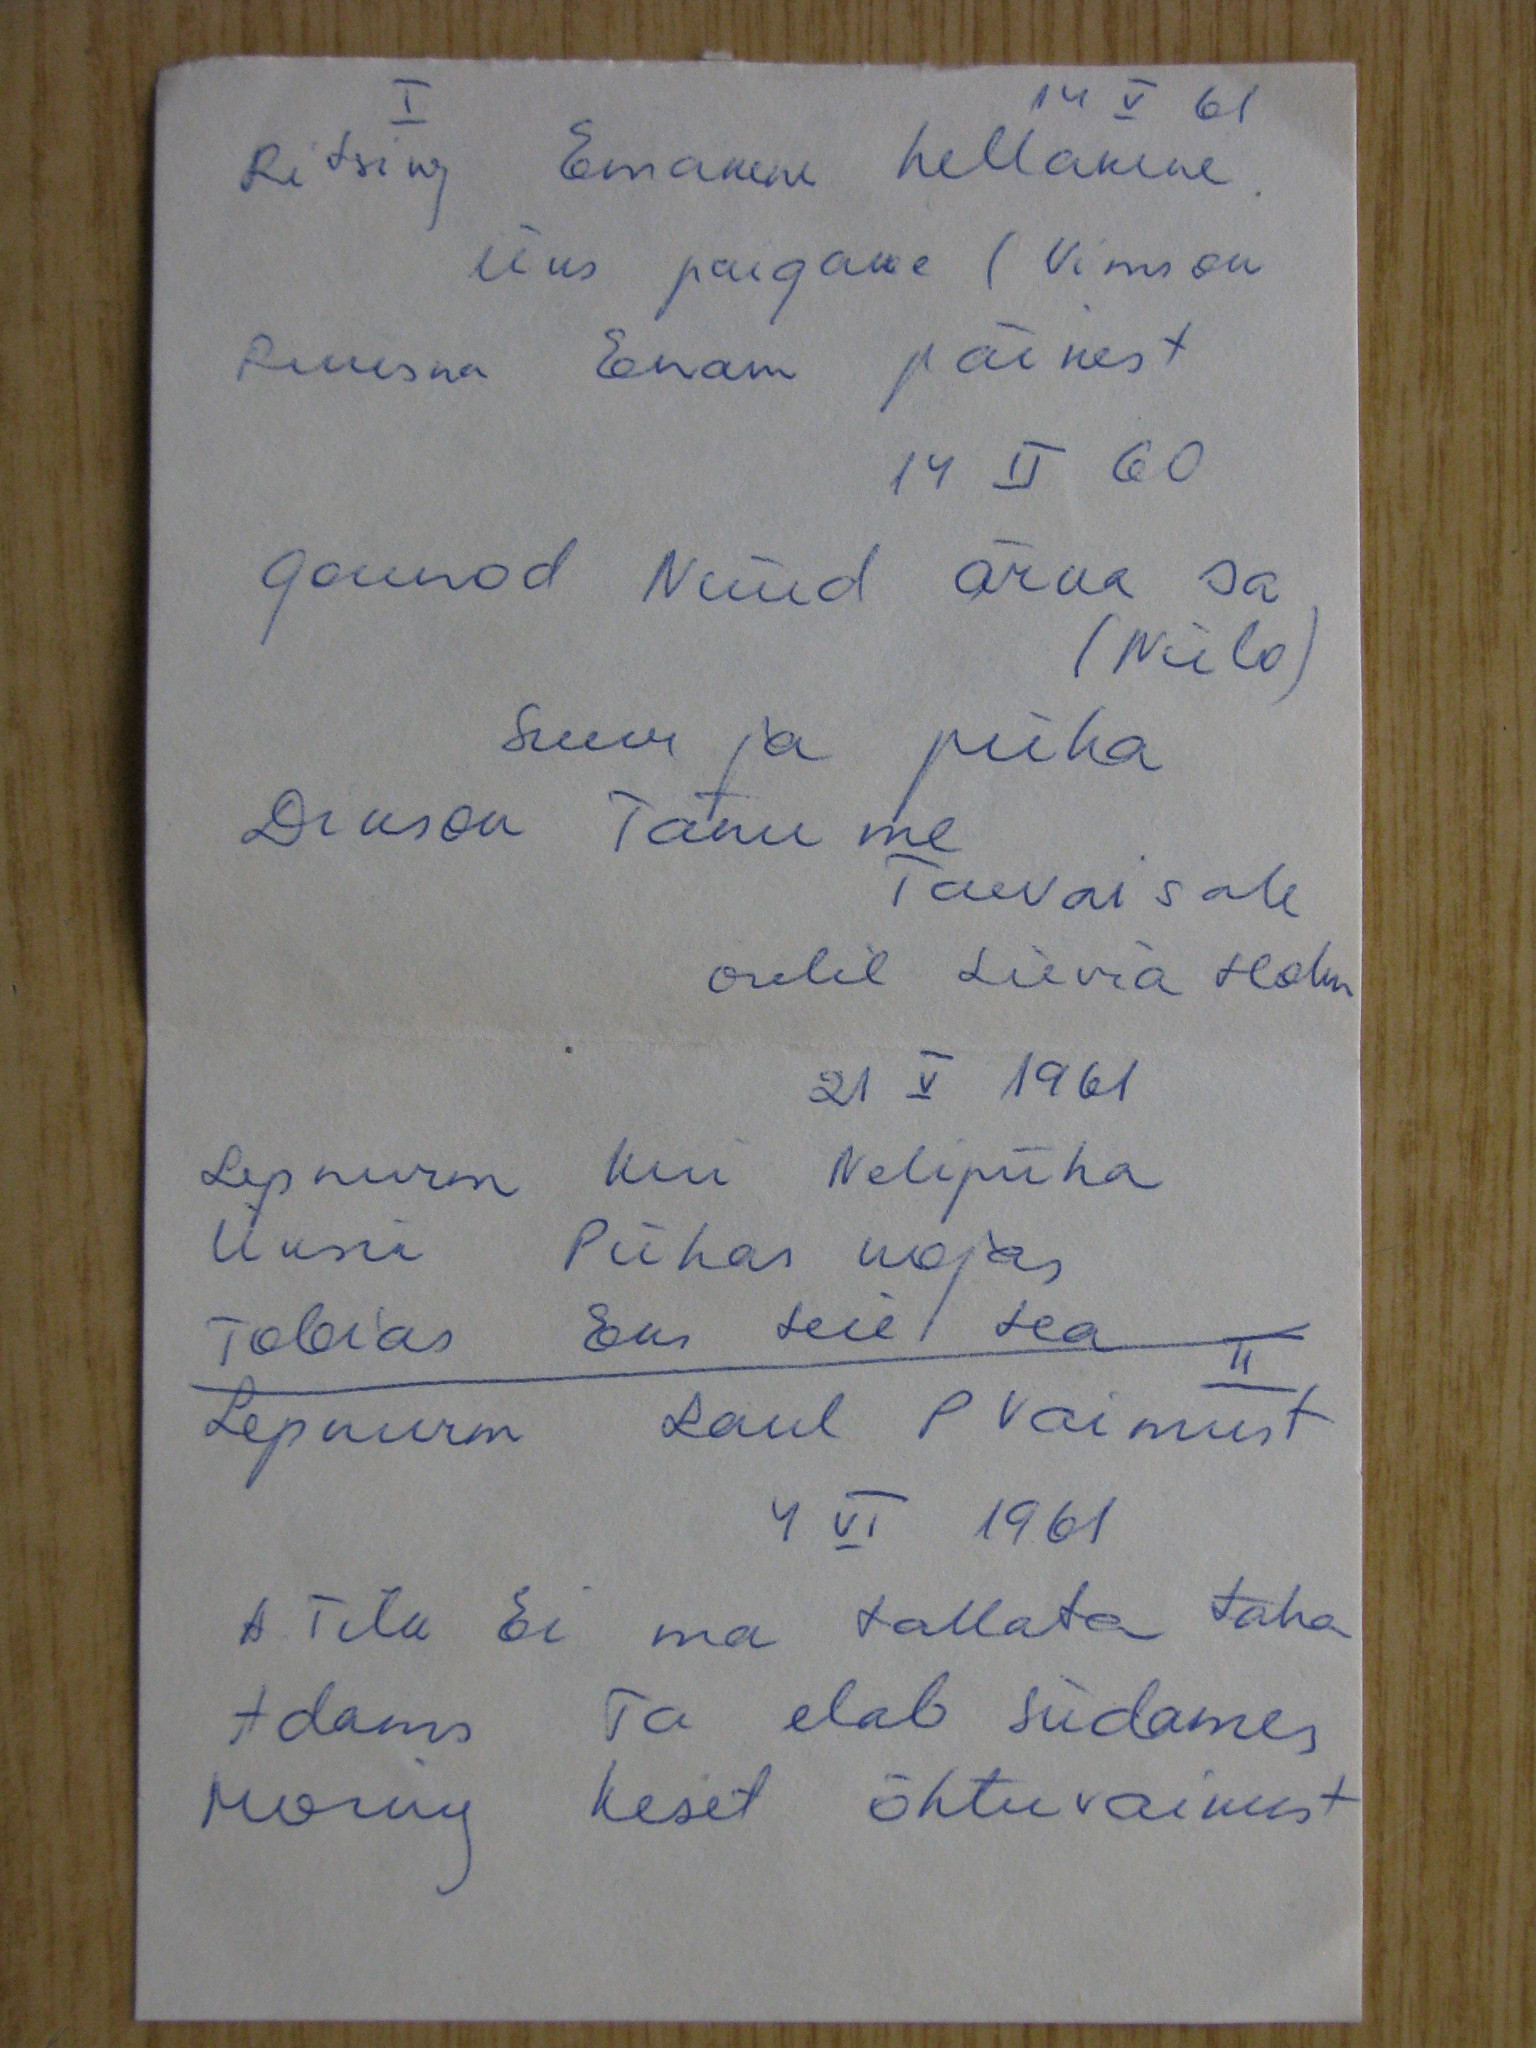 I 14 V 61
Ritsing Emakene hellakene.
Üks paigake (Vimson
Enam päikest
14 II 60
Gounod Nüüd ärka sa
(Niilo)
Suur ja püha
Tänu me
Taevaisale
21 V 1961
Lepnurm Kui Nelipüha
Pühas kojas
Tobias Eks teie tea
II
Lepnurm Laul P Vaimust
4 VI 1961
A Tilk Ei ma tallata taha
Adams Ta elab südames
Moring Keset õhtuvaikust